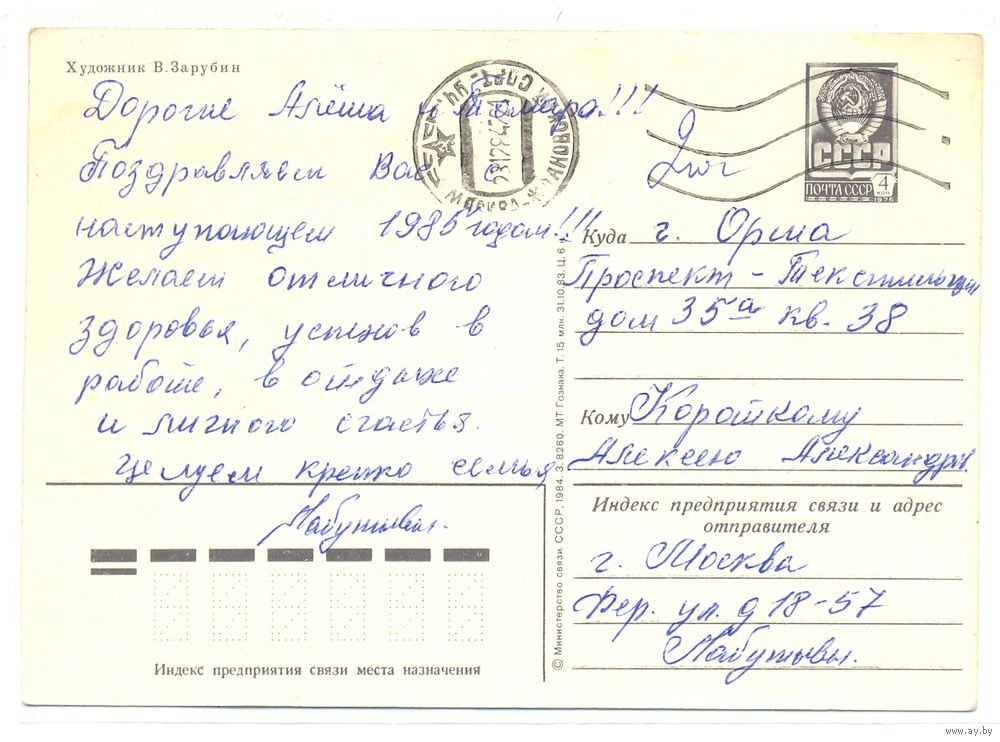 Художник В.Зарубин
Дорогие Алёша и Тамара!!!
Поздравляем Вас с
наступающем 1985 годом!!!
Желаем отличного
здоровья, успехов в
работе, в отдыхе
и личного счастья.
Целуем крепко семья
Лабутевы.
СССР
ПОЧТА СССР
4
КОП
1976
Куда г. Орша
Проспект - Текстильщи
дом 35а кв. 38
Кому Короткому
Алексею Александр.
Индекс предприятия связи и адрес
отправителя
г. Москва
Фер. ул. д 18-57
Лабутевы.
Индекс предприятия связи места назначения
© Министерство связи СССР, 1984. З. 8260. МТ Гознака. Т. 15 млн. 31.10.83. Ц. 6 к.
МОСКВА
www.ay.by